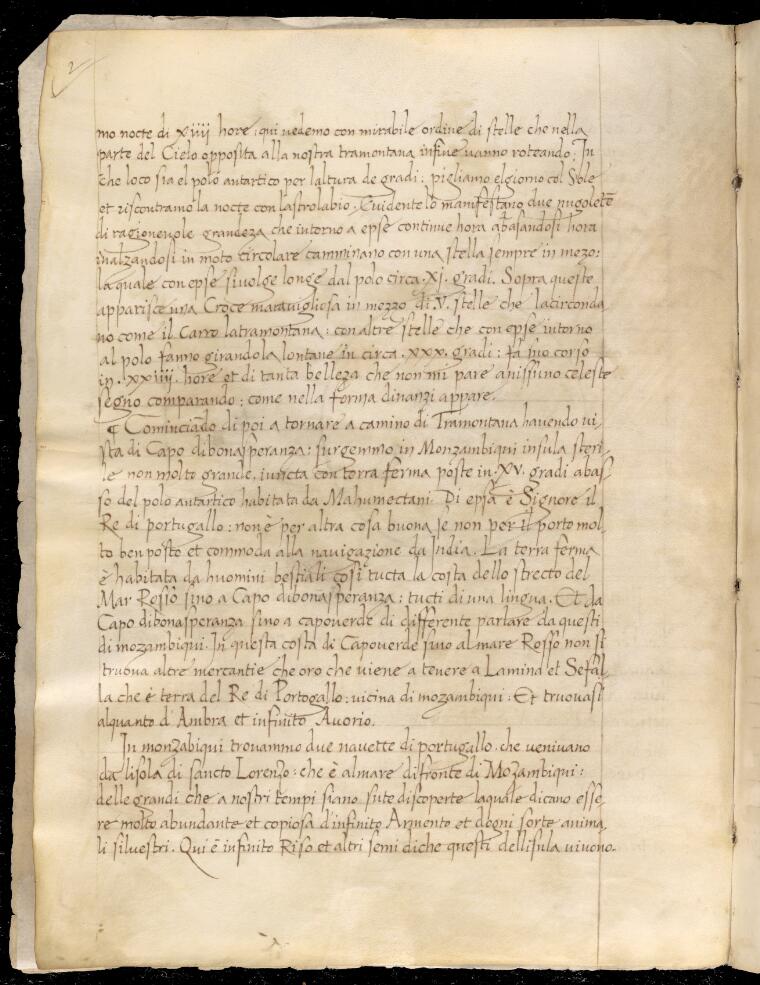 2
mo nocte di xiiij hore: qui vedemo con mirabile ordine di stelle che nella
parte del Cielo opposita alla nostra tramontana infine vanno roteando. In
che loco sia el polo antartico per laltura de gradi: pigliamo el giorno col Sole
et riscontramo la nocte con lastrolabio. Evidente lo manifestano due nugolete
di ragionevole grandeza che intorno a epse continue hora abasandosi hora
inalzandosi in moto circolare camminano con una stella sempre in mezo:
la quale con epse sivolge longe dal polo circa .xj. gradi. Sopra queste
apparisce una Croce maravigliosa in mezzo di .V. stelle che lacirconda
no come il Carro latramontana: con altre stelle che con epse intorno
al polo fanno girandola lontane in circa .xxx. gradi: fa suo corso
in .xxiiij. hore et di tanta belleza che non mi pare anissuno celeste
segno comparando: come nella forma dinanzi appare.
¶ Cominciado di poi a tornare a camino di Tramontana havendo vi,
sta di Capo dibonasperanza: surgemmo in Monzambiqui insula steri,
le non molto grande, iuncta con terra ferma poste in .XV. gradi abas,
so del polo antartico habitata da Mahumectani. Di epsa è Signore il
Re di portugallo: non è per altra cosa buona se non per il porto mol,
to ben posto et commoda alla navigazione da India. La terra ferma
è habitata da huomini bestiali cosi tucta la costa dello strecto del
Mar Rosso sino a Capo dibonasperanza: tucti di una lingua. Et da
Capo dibonasperanza sino a capoverde di differente parlare da questi
di mozambiqui. In questa costa di Capoverde sino al mare Rosso non si
truova altre mercantie che oro che viene a tenere a Lamina et Sefal,
la che è terra del Re di Portogallo: vicina di mozambiqui. Et truovasi
alquanto d Ambra et infinito Avorio.
In monzabiqui trovammo due navette di portugallo, che venivano
da lisola di sancto Lorenzo: che è almare difronte di Mozambiqui:
delle grandi che a nostri tempi siano sute discoperte laquale dicano esse,
re molto abundante et copiosa d'infinito Argento et dogni sorte anima,
li silvestri. Qui è infinito Riso et altri semi diche questi dellisula vivono.